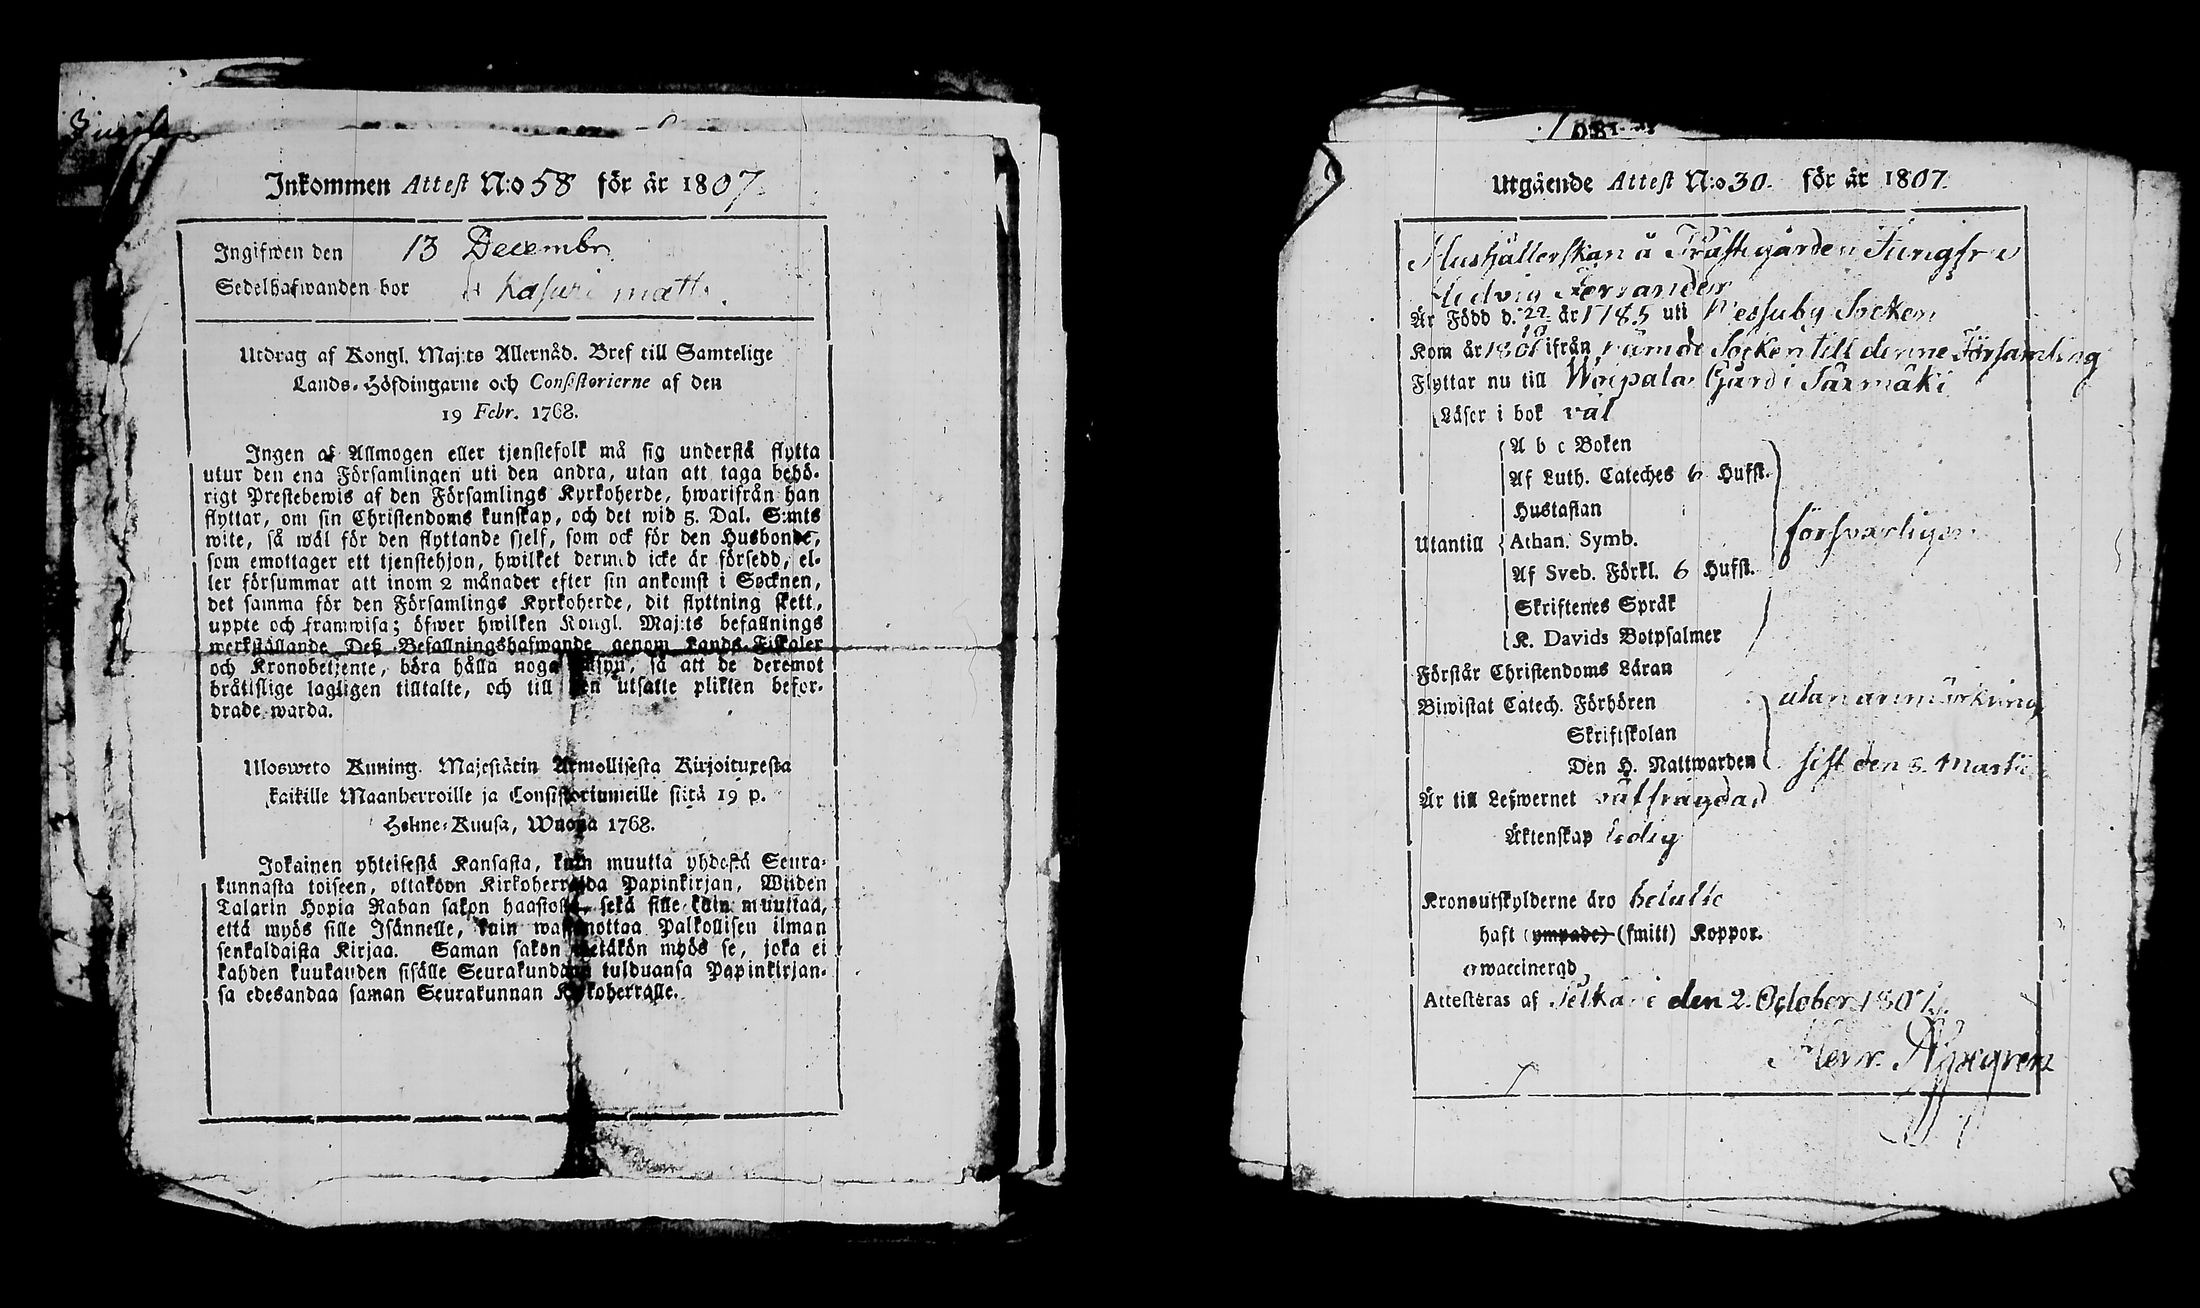 Inkommen Attest N:o 58 för år 1807.
Ingifwen den 13 Decembr
Sedelhafwanden bor
Utdrag af Kongl. Maj:ts Allernåd. Bref till Samtelige
Lands-Höfdingarne och Consistorierne af den
19 Febr. 1768.
Ingen af Allmogen eller tjenstefolk må sig understå flytta
utur den ena Församlingen uti den andra, utan att taga behö-
rigt Prestebewis af den Församlings Kyrkoherde, hwarifrån han
flyttar, om sin Christendoms kunskap, och det wid 5. Dal. S:mts
wite, så wäl för den flyttande sjelf, som ock för den Husbonde,
som emottager ett tjenstehjon, hwilket dermed icke är försedd, el-
ler försummar att inom 2 månader efter sin ankomst i Socknen,
det samma för den Församlings Kyrkoherde, dit flyttning skett,
uppte och framwisa; öfwer hwilken Kongl. Maj:ts befallnings
werkställande Deß Befallningshafwande genom Lands-Fiskaler
och Kronobetjente, böra hålla noga , så att de deremot
bråtislige lagligen tilltalte, och till den utsatte plikten befor-
drade warda.
Ulosweto Kuning. Majestätin Armollisesta Kirjoituxesta
kaikille Maanherroille ja Consistoriumeille siitä 19 p.
Helme-Kuusa, Wuonna 1768.
Jokainen yhteisestä Kansasta, kuin muutta yhdestä Seura-
kunnasta toiseen, ottakoon Kirkoherralda Papinkirjan, Wiiden
Talarin Hopia Rahan sakon haastolla, sekä sille kuin muuttaa,
että myös sille Isännelle, kuin wastanottaa Palkollisen ilman
senkaldaista Kirjaa. Saman sakon wetäkön myös se, joka ei
kahden kuukauden sisälle Seurakundaan tulduansa Papinkirjan-
sa edesandaa saman Seurakunnan Kirkoherralle.
Utgående Attest N:o 30. för år 1807.
Hushållerskan å Prästegården Jungfru
Hedvig Forsander
Är Född d. 22 år 1785 uti Wessuby Socken
Kom år 1801 ifrån Socken till denne Församling
Flyttar nu till Woipala Gård i Säxmäki
Läser i bok väl
A b c Boken
Af Luth. Cateches 6 Hufst.
Hustaflan
Utantill Athan. Symb. försvarligen
Af Sveb. Förkl. 6 Hufst.
Skriftenes Språk
K. Davids Botpsalmer
Förstår Christendoms Läran
Biwistat Catech. Förhören utan anmärkning
Skriftskolan
Den H. Nattwarden sist den 5. Martii
Är till Leßwernet välfrägdad
Äktenskap ledig
Kronoutskylderne äro betalte
haft (ympade) (smitt) Koppor.
waccinerad
Attesteras af den 2. October 1807.
Henr.